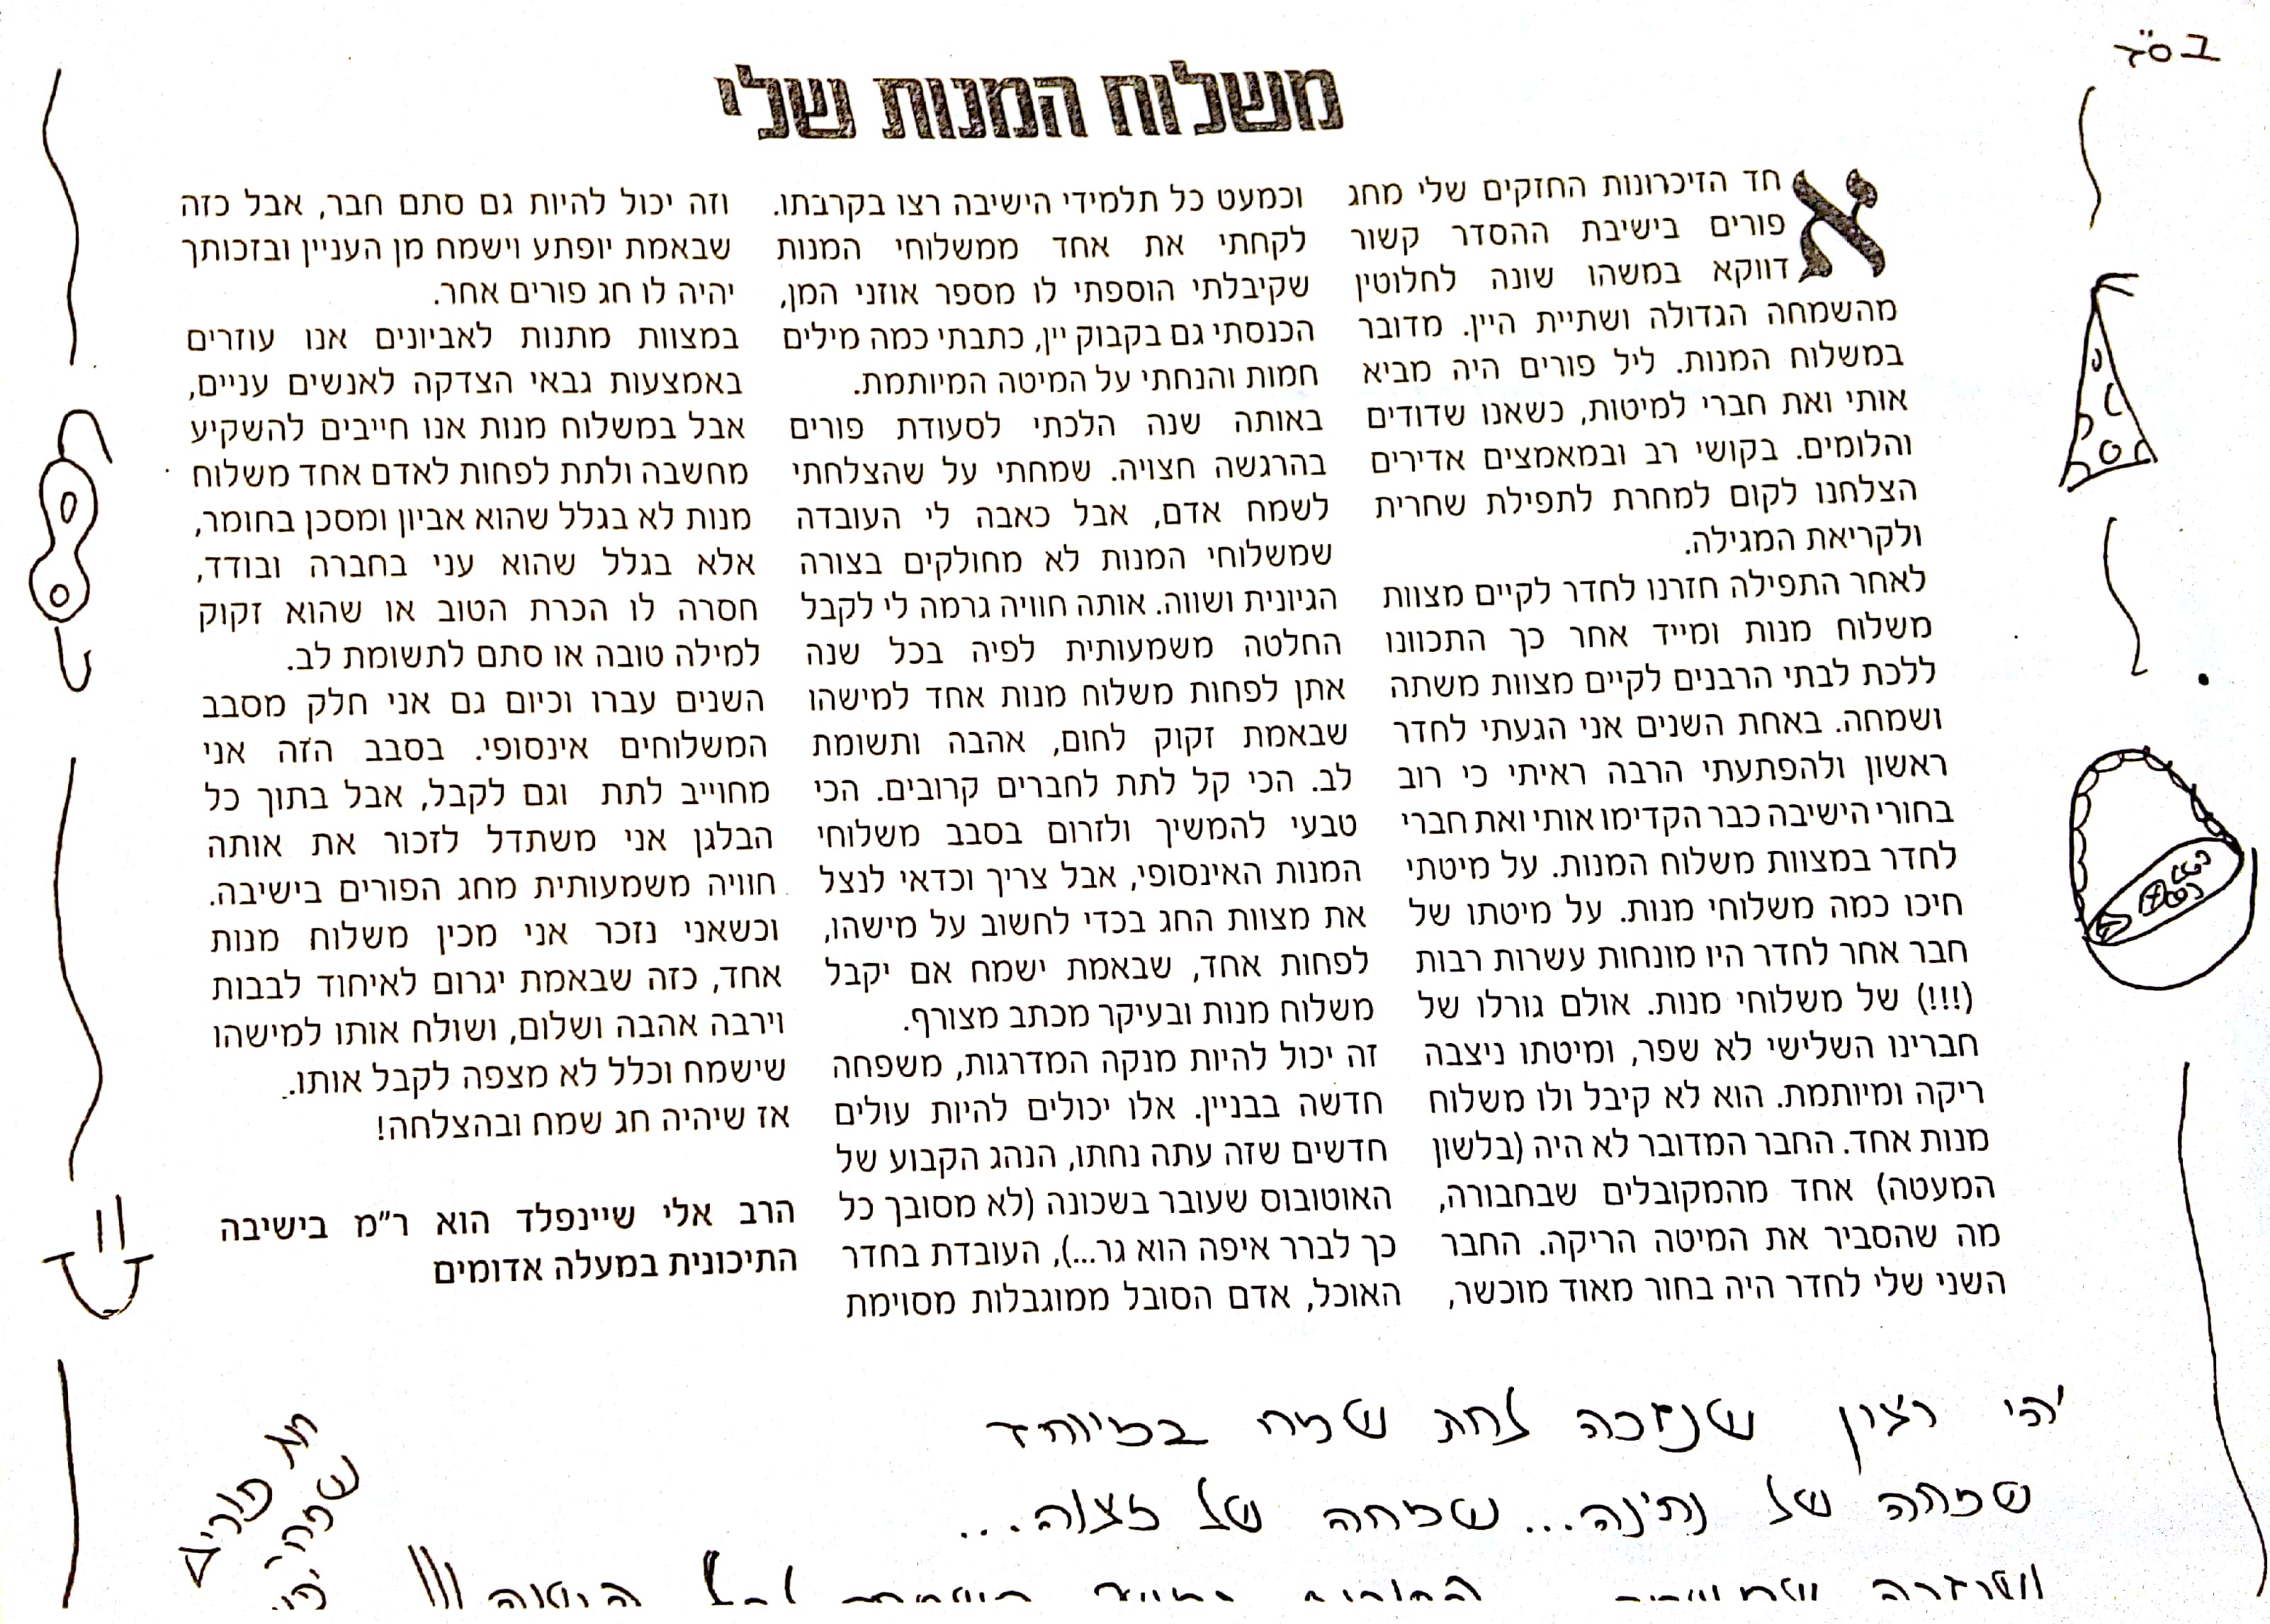 בס"ד
משלוח המנות שלי
אחד הזיכרונות החזקים שלי מחג
פורים בישיבת ההסדר קשור
דווקא במשהו שונה לחלוטין
מהשמחה הגדולה ושתיית היין. מדובר
במשלוח המנות. ליל פורים היה מביא
אותי ואת חברי למיטות, כשאנו שדודים
והלומים. בקושי רב ובמאמצים אדירים
הצלחנו לקום למחרת לתפילת שחרית
ולקריאת המגילה.
לאחר התפילה חזרנו לחדר לקיים מצוות
משלוח מנות ומייד אחר כך התכוונו
ללכת לבתי הרבנים לקיים מצוות משתה
ושמחה. באחת השנים אני הגעתי לחדר
ראשון ולהפתעתי הרבה ראיתי כי רוב
בחורי הישיבה כבר הקדימו אותי ואת חברי
לחדר במצוות משלוח המנות. על מיטתי
חיכו כמה משלוחי מנות. על מיטתו של
חבר אחר לחדר היו מונחות עשרות רבות
(!!!) של משלוחי מנות. אולם גורלו של
חברינו השלישי לא שפר, ומיטתו ניצבה
ריקה ומיותמת. הוא לא קיבל ולו משלוח
מנות אחד. החבר המדובר לא היה (בלשון
המעטה) אחד מהמקובלים שבחבורה,
מה שהסביר את המיטה הריקה. החבר
השני שלי לחדר היה בחור מאוד מוכשר,
וכמעט כל תלמידי הישיבה רצו בקרבתו.
לקחתי את אחד ממשלוחי המנות
שקיבלתי הוספתי לו מספר אוזני המן,
הכנסתי גם בקבוק יין, כתבתי כמה מילים
חמות והנחתי על המיטה המיותמת.
באותה שנה הלכתי לסעודת פורים
בהרגשה חצויה. שמחתי על שהצלחתי
לשמח אדם, אבל כאבה לי העובדה
שמשלוחי המנות לא מחולקים בצורה
הגיונית ושווה. אותה חוויה גרמה לי לקבל
החלטה משמעותית לפיה בכל שנה
אתן לפחות משלוח מנות אחד למישהו
שבאמת זקוק לחום, אהבה ותשומת
לב. הכי קל לתת לחברים קרובים. הכי
טבעי להמשיך ולזרום בסבב משלוחי
המנות האינסופי, אבל צריך וכדאי לנצל
את מצוות החג בכדי לחשוב על מישהו,
לפחות אחד, שבאמת ישמח אם יקבל
משלוח מנות ובעיקר מכתב מצורף.
זה יכול להיות מנקה המדרגות, משפחה
חדשה בבניין. אלו יכולים להיות עולים
חדשים שזה עתה נחתו, הנהג הקבוע של
האוטובוס שעובר בשכונה (לא מסובך כל
כך לברר איפה הוא גר...), העובדת בחדר
האוכל, אדם הסובל ממוגבלות מסוימת
וזה יכול להיות גם סתם חבר, אבל כזה
שבאמת יופתע וישמח מן העניין ובזכותך
יהיה לו חג פורים אחר.
במצוות מתנות לאביונים אנו עוזרים
באמצעות גבאי הצדקה לאנשים עניים,
אבל במשלוח מנות אנו חייבים להשקיע
מחשבה ולתת לפחות לאדם אחד משלוח
מנות לא בגלל שהוא אביון ומסכן בחומר,
אלא בגלל שהוא עני בחברה ובודד,
חסרה לו הכרת הטוב או שהוא זקוק
למילה טובה או סתם לתשומת לב.
השנים עברו וכיום גם אני חלק מסבב
המשלוחים אינסופי. בסבב הזה אני
מחוייב לתת וגם לקבל, אבל בתוך כל
הבלגן אני משתדל לזכור את אותה
חוויה משמעותית מחג הפורים בישיבה.
וכשאני נזכר אני מכין משלוח מנות
אחד, כזה שבאמת יגרום לאיחוד לבבות
וירבה אהבה ושלום, ושולח אותו למישהו
שישמח וכלל לא מצפה לקבל אותו.
אז שיהיה חג שמח ובהצלחה!
הרב אלי שיינפלד הוא ר"מ בישיבה
התיכונית במעלה אדומים
יהי רצון שנזכה לחג שמח במיוחד
שמחה של נתינה... שמחה של מצוה...
חג פורים
שמח